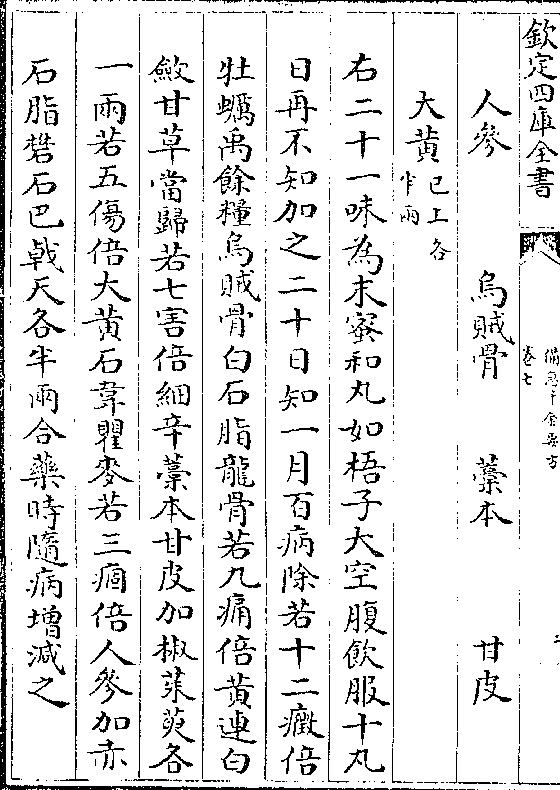 欽定四庫全書
備急千金要方
卷七
人參　烏賊骨　藁本　甘皮
大黃已上各半兩
右二十一味為末蜜和丸如梧子大空腹飲服十丸
日再不知加之二十日知一月百病除若十二癥倍
牡蠣禹餘糧烏賊骨白石脂龍骨若九痛倍黃連白
斂甘草當歸若七害倍細辛藁本甘皮加椒茱萸各
一兩若五傷倍大黃石韋瞿麥若三痼倍人參加赤
石脂礬石巴戟天各半兩合藥時隨病增減之